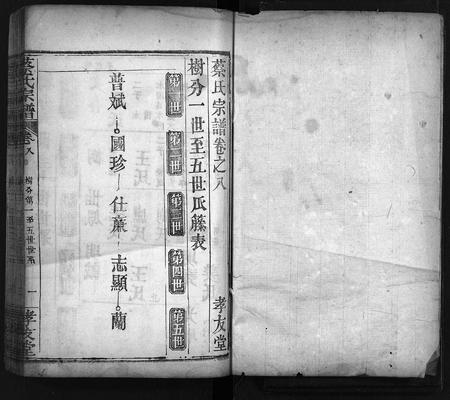 蔡氏宗譜卷之八
孝友堂
樹分一世至五世瓜藤表
第一世 第二世 第三世 第四世 第五世
普斌 國珍 仕廉 志顯 蘭
蔡氏宗譜 卷八
樹分第一至五世世系
一
孝友堂